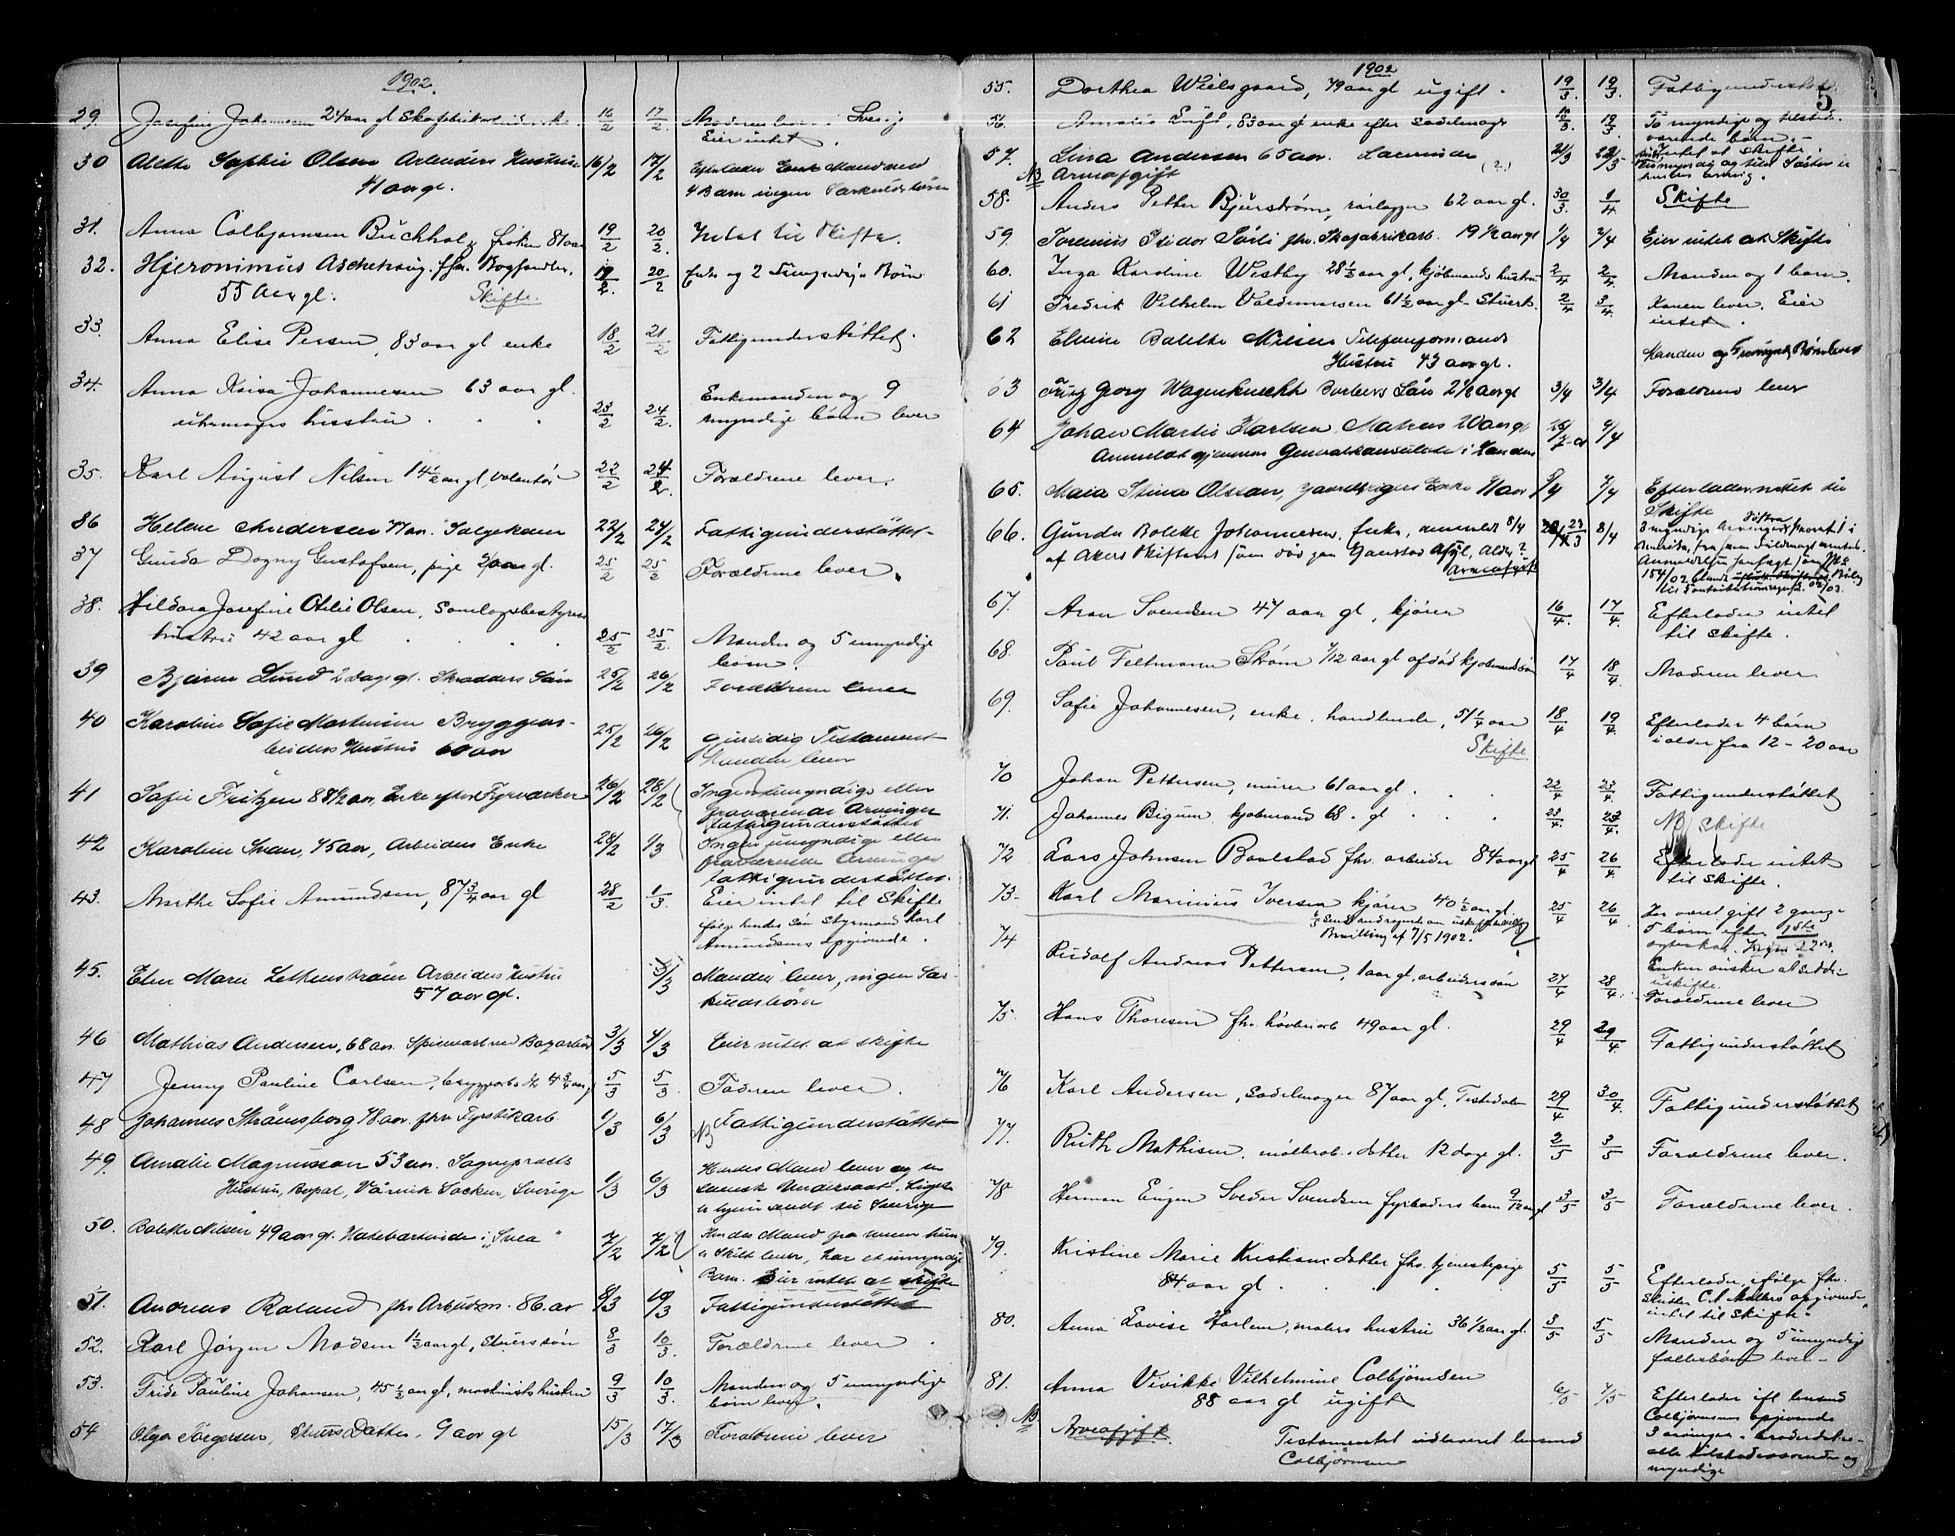 1902.
29. Josefine Johannesen 24 aar gl Skofabrikarbeiderske. 16/2 17/2. Moderen bor i Sverig
Eier intet.
30 Alette Sophie Olsen Arbeiders Hustru 16/2 17/2 Efterlader Enkemand med
41 aar gl. 4 Barn ingen Særkuldsbørn
31. Anna Colbjørnsen Buchholz frøken 81 aar 19/2 20/2. Intet til Skifte.
32. Hjeronimus Aschehoug. fhv. Boghandler, 19/2. 20/2 Enke og 2 Børn
55 Aar gl. Skifte.
33. Anna Elise Persen, 83 aar gl enke 18/2 21/2 Fattigunderstøttet.
34. Anna Kaisa Johannesen 63 aar gl. Enkemanden og 9
uhrmagers hustru 23/2 24/2. myndige børn lever
35. Karl August Nilsen 14 1/2 aar gl, volontør 22/2 24/2. Forældrene lever.
36 Helene Andersen 77 aar. Salgskone 22/2 24/2 Fattigunderstøttet-
37 Gunda Dagny Gustafsen, pige 2 aar gl. 25/2 25/2 Forældrene lever.
38. Hildora Josefine Otilie Olsen, Samlagsbestyrers
hustru 42 aar gl 25/2 25/2. Manden og 5 umyndige
børn.
39 Bjarne Lund 2 Dage gl. Skrædders Søn 25/2 26/2 Forældrene lever
40 Karoline Sofie Martinsen Bryggear-
beiders Hustru 60 aar 25/2 26/2 gjensidig Testament
Manden lever
41 Sofie Fritzen 88 1/2 aar, Enke efter Fyrværker 26/2 28/2 Ingen umyndige eller
fraværende Arvinger
fattigunderstøttet
42 Karoline Svan, 75 aar, Arbeiders Enke 28/2 1/3 Ingen umyndige eller
fraværende Arvinger
fattigunderstøttet.
43. Marthe Sofie Amundsen, 87 3/4 aar gl 28/2 1/3. Eier intet til Skifte
ifølge hendes Søn Styrmand Karl
Amundsens opgivende.
45. Elen Marie Arbeiders Hustru 3/3 Manden lever, ingen Sær-
57 aar gl. kuldsbørn
46 Mathias Andersen, 68 aar. 3/3 4/3 Eier intet at skifte
47 Jenny Pauline Carlsen, 4 3/4 aar 5/3 5/3. Faderen lever.
48 Johannes Strømsborg 78 aar. fhv Fyrstikarb 1/3 6/3 NB Fattigunderstøttet
49. Amalie Magnusson 53 aar. Sogneprests Hendes Mand lever og er
Hustru, Sverige 1/3 6/3 svensk Undersaat. Liget
er hjemsendt til Sverige
50. Bolette Nilsen 49 aar gl. i "Svea" 7/2 7/2 Hendes Mand fra hvem hun
er skilt lever, har et umyndig
Barn. Eier intet at skifte
51. Andreas Roland fhv Arbeidsm. 86 aar 8/3 10/3 Fattigunderstøttet
52. Karl Jørgen Madsen 1/2 aar gl, Stuers søn 8/3 10/3. Forældrene lever
53. Pauline Johansen, 45 1/2 aar gl, maskinists hustru 9/3 10/3. Manden og 5 umyndige
børn lever.
54 Olga Torgersen, Stuers Datter 9 aar gl 15/3 17/3 Forældrene lever
1902
5
55. Dorthea Wielsgaard, 79 aar gl ugift. 19/3. 19/3. Fattigunderstøttet.
56. Amalie Luft, 83 aar gl enke efter Sadelmager 19/3. 19/3. To myndige og tilstede
værende børn.
Intet at skifte.
57. Lina Andersen 65 aar. Lærerinde (?) 21/3 22/3
NB Arveafgift
58. Anders Petter Bjurstrøm, rørlægger 62 aar gl. 30/3. 1/4 Skifte
59. Isidor fhv. Skofabrikarb. 19 1/2 aar gl 1/4 2/4 Eier intet at Skifte
60. Inga Karoline Westby 28 1/3 aar gl, kjøbmands hustru 2/4 2/4. Manden og 1 barn.
61 Fredrik Vilhelm Valdemarsen 61 1/2 aar gl. Stuert. 2/4 3/4. Konen lever. Eier
intet.
62 Elvine Bolette Nilsen Telefonformands
Hustru 43 aar gl. Manden og Børn lever
63 Georg Wagenknecht Barbers Søn 2 1/2 aar gl 3/4 3/4 Forældrene lever
64 Johan Martin Karlsen Matros 20 aar gl 9/4
Anmeldt gjennem Generalkonsulatet i
65. Maia Stina Olsson, Enke 71 aar 5/4 7/4 Efterlader intet til
Skifte
66. Gunda Bolette Johannesen, Enke, anmeldt 8/4 23/3 8/4 3 myndige Arvinger
af Akers Skifteret som død paa Gaustad Asyl, Alder?
Arveafgift
154/02
67. Aron Svendsen 47 aar gl, kjører 16/4. 17/4. Efterlader intet
til skifte.
68. Paul Feltmann Strøm 7/12 aar gl afdød kjøbmands søn 17/4 18/4. Moderen lever
69. Sofie Johannesen, enke, handlende, 51 1/4 aar 18/4 19/4. Efterlader 4 børn
Skifte i alder fra 12-20 aar
70 Johan Pettersen, murer 61 aar gl. 22/4 23/4. Fattigunderstøttet
71. Johannes Bigum, kjøbmand 68. gl 23/4. 23/4. NB Skifte
72 Lars Johnsen Baalstad fhv. arbeider 84 aar gl 25/4 26/4 Efterlader intet
til skifte.
73- Karl Marinius Iversen kjører 40 1/2 aar gl. 25/4 26/4. Har været gift 2 gange
Bevilling af 7/5 1902. 5 børn efter 1ste
egteskab. Ingen i 2det.
Enken ønsker at sidde i
uskifte.
74 Rudolf Andreas Pettersen, 1 aar gl, arbeiders søn 27/4 28/4. Forældrene lever
75 Hans Thoresen fhv. høvleriarb 49 aar gl. 29/4 29/4 Fattigunderstøttet
76 Karl Andersen, Sadelmager 87 aar gl, Tistedalen 29/4 30/4. Fattigunderstøttet
77. Ruth Mathisen, datter 12 dage gl. 2/5 3/5 Forældrene lever.
78 Herman Eugen Svendsen fyrbøders barn 9/12 aar gl 3/5 3/5 Forældrene lever.
79. Kristine Marie Kristiansdatter fhv. tjenestepige
84 aar gl. 5/5 5/5 Efterlader, ifølge fhv.
opgivende,
intet til Skifte.
80. Anna Lovise Karlsen, malers hustru 36 1/2 aar gl. 5/5 5/5 Manden og 5 umyndig
fællesbørn lever-
81. Anna Vivikke Vilhelmine Colbjørnsen 6/5 7/5 Efterlader ifl.
88 aar gl ugift Colbjørnsens opgivende
NB Arveafgift 3 arvinger.
Testamentet udleveret
Colbjørnsen alle tilstedeværende og
myndige